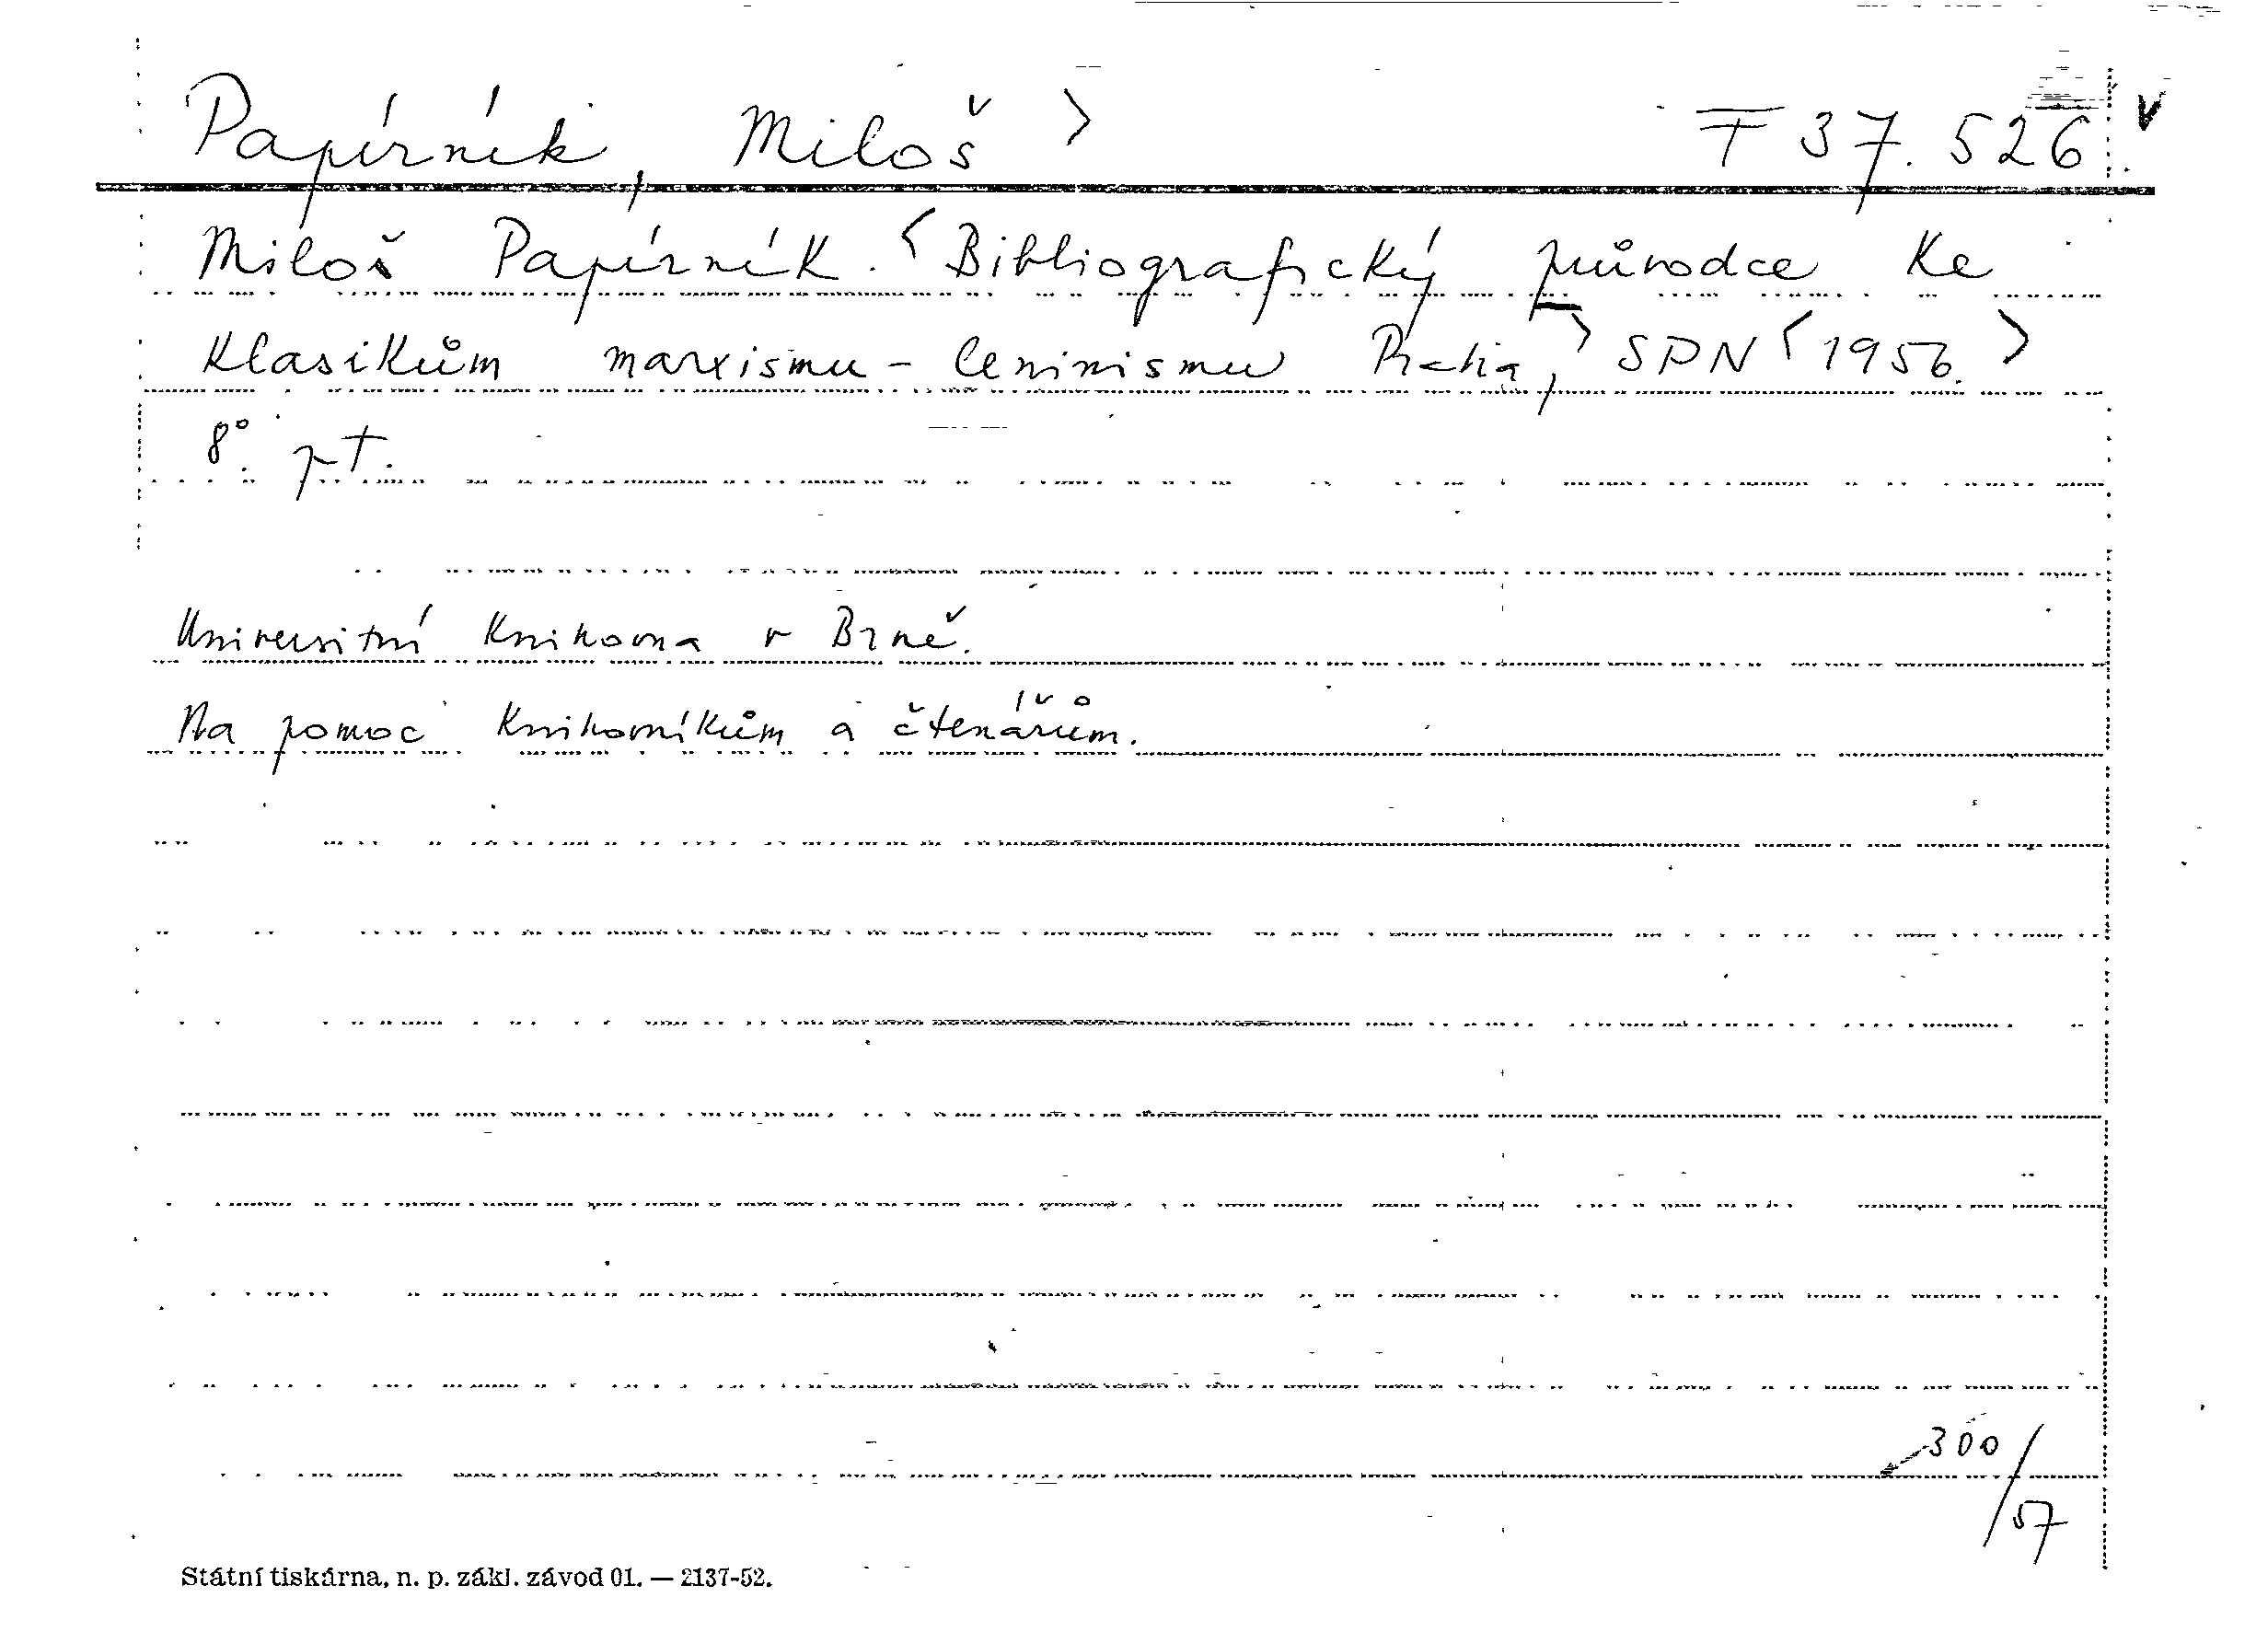 Papírník, Miloš > F 37.526. v
Miloš Papírník. < Bibliografický průvodce ke
klasikům marxismu - leninismu Praha, > SPN < 1956. >
8°. pt.
Universitní knihovna v Brně.
Na pomoc knihovníkům a čtenářům.
300/57
Státní tiskárna, n. p. zákl. závod 01. — 2137-52.